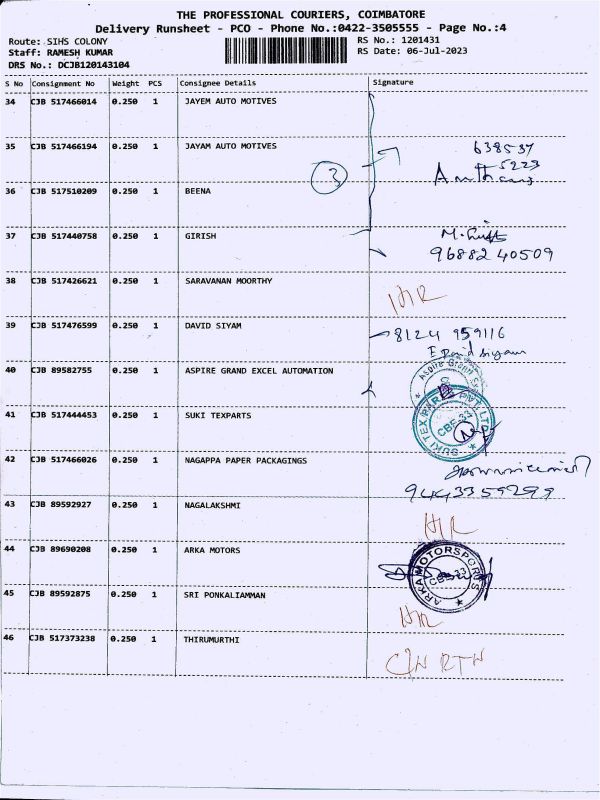 THE PROFESSIONAL COURIERS, COIMBATORE
Delivery Runsheet - PCO - Phone No.:0422-3505555 - Page No.:4
Route: SIHS COLONY
RS No.: 1201431
Staff: RAMESH KUMAR
RS Date: 06-Jul-2023
DRS No.: DCJB120143104
S No Consignment No Weight PCS Consignee Details Signature
34 CJB 517466014 0.250 1 JAYEM AUTO MOTIVES
35 CJB 517466194 0.250 1 JAYAM AUTO MOTIVES
638537
5223
3
36 CJB 517510209 0.250 1 BEENA
37 CJB 517440758 0.250 1 GIRISH
9688240509
38 CJB 517426621 0.250 1 SARAVANAN MOORTHY
39 CJB 517476599 0.250 1 DAVID SIYAM
8124 959116
40 CJB 89582755 0.250 1 ASPIRE GRAND EXCEL AUTOMATION
41 CJB 517444453 0.250 1 SUKI TEXPARTS
CBE-33
42 CJB 517466026 0.250 1 NAGAPPA PAPER PACKAGINGS
9443359299
43 CJB 89592927 0.250 1 NAGALAKSHMI
44 CJB 89690208 0.250 1 ARKA MOTORS
ARKA MOTORSPORTS
CBE-33
45 CJB 89592875 0.250 1 SRI PONKALIAMMAN
46 CJB 517373238 0.250 1 THIRUMURTHI
RTN